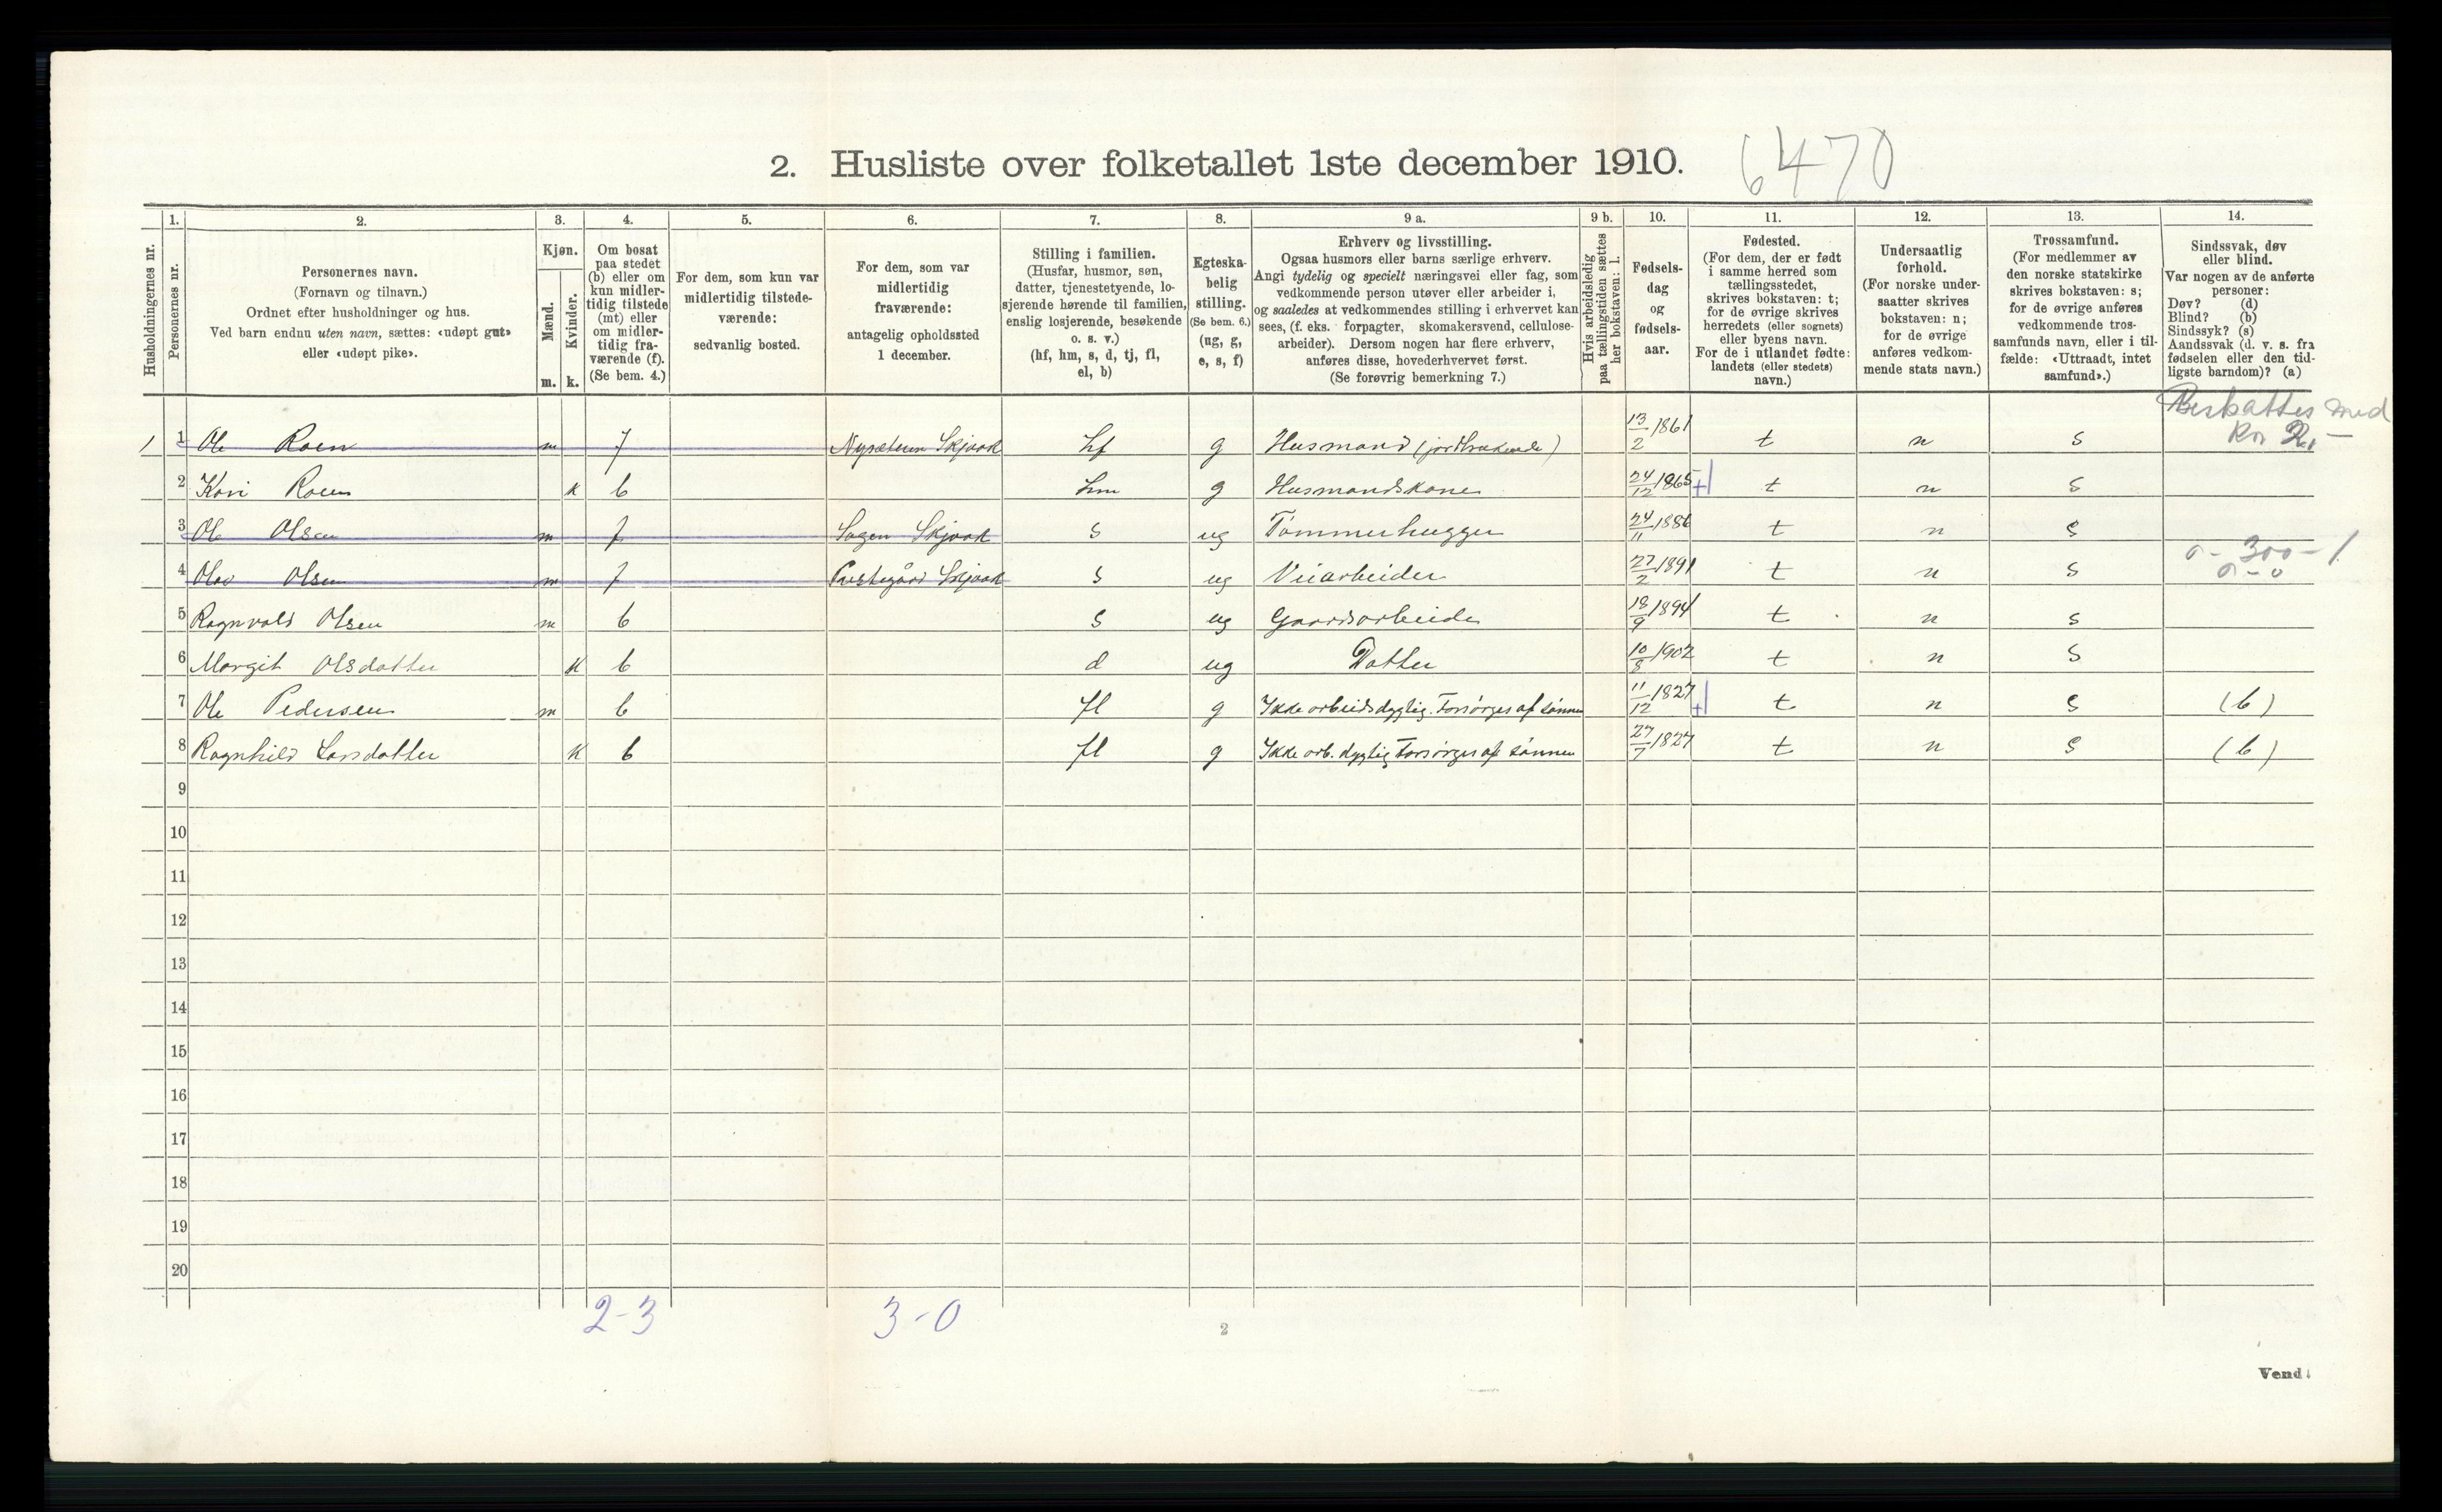 2. Husliste over folketallet 1ste december 1910. 6470
Husholdningernes nr.
1.
Personernes nr.
2.
Personernes navn.
(Fornavn og tilnavn.)
Ordnet efter husholdninger og hus.
Ved barn endnu uten navn, sættes: «udøpt gut»
eller «udøpt pike».
3.
Kjøn.
Mænd.
Kvinder.
m. k.
4.
Om bosat
paa stedet
(b) eller om
kun midler-
tidig tilstede
(mt) eller
om midler-
tidig fra-
værende (f).
(Se bem. 4.)
5.
For dem, som kun var
midlertidig tilstede-
værende:
sedvanlig bosted.
6.
For dem, som var
midlertidig
fraværende:
antagelig opholdssted
1 december.
7.
Stilling i familien.
(Husfar, husmor, søn,
datter, tjenestetyende, lo-
sjerende hørende til familien,
enslig losjerende, besøkende
o. s. v.)
(hf, hm, s, d, tj, fl,
el, b)
8.
Egteska-
belig
stilling.
(Se bem. 6.)
(ug, g,
e, s, f)
9 a.
Erhverv og livsstilling.
Ogsaa husmors eller barns særlige erhverv.
Angi tydelig og specielt næringsvei eller fag, som
vedkommende person utøver eller arbeider i,
og saaledes at vedkommendes stilling i erhvervet kan
sees, (f. eks. forpagter, skomakersvend, cellulose-
arbeider). Dersom nogen har flere erhverv,
anføres disse, hovederhvervet først.
(Se forøvrig bemerkning 7.)
9 b.
Hvis arbeidsledig
paa tællingstiden sættes
her bokstaven: l.
10.
Fødsels-
dag
og
fødsels-
aar.
11.
Fødested.
(For dem, der er født
i samme herred som
tællingsstedet,
skrives bokstaven: t;
for de øvrige skrives
herredets (eller sognets)
eller byens navn.
For de i utlandet fødte:
landets (eller stedets)
navn.)
12.
Undersaatlig
forhold.
(For norske under-
saatter skrives
bokstaven: n;
for de øvrige
anføres vedkom-
mende stats navn.)
13.
Trossamfund.
(For medlemmer av
den norske statskirke
skrives bokstaven: s;
for de øvrige anføres
vedkommende tros-
samfunds navn, eller i til-
fælde: «Uttraadt, intet
samfund».)
14.
Sindssvak, døv
eller blind.
Var nogen av de anførte
personer:
Døv? (d)
Blind? (b)
Sindssyk? (s)
Aandssvak (d. v. s. fra
fødselen eller den tid-
ligste barndom)? (a)
Beskattes med
1 1 Ole Roen m f Nysæteren Skjaak hf g Husmand (jordbrukende) 13/2 1861 t n s
2 Kari Roen k b hm g Husmandskone 24/12 1865 + t n s
3 Ole Olsen m f Skjaak s ug Tømmerhugger 24/11 1886 t n s
300
4 Olav Olsen m f Prestegård Skjaak s ug Veiarbeider 27/2 1891 t n s
5 Ragnvald Olsen m b s ug Gaardsarbeide 18/9 1894 t n s
6 Margit Olsdatter k b d ug Datter 10/8 1902 t n s
7 Ole Pedersen m b fl g Ikke arbeidsdygtig. Forsørges af sønnen 11/12 1827 + t n s (b)
8 Ragnhild Larsdatter k b fl g Ikke arb. dygtig Forsørges af sønnen 27/7 1827 t n s (b)
9
10
11
12
13
14
15
16
17
18
19
20
2-3 3-0
2
Vend!